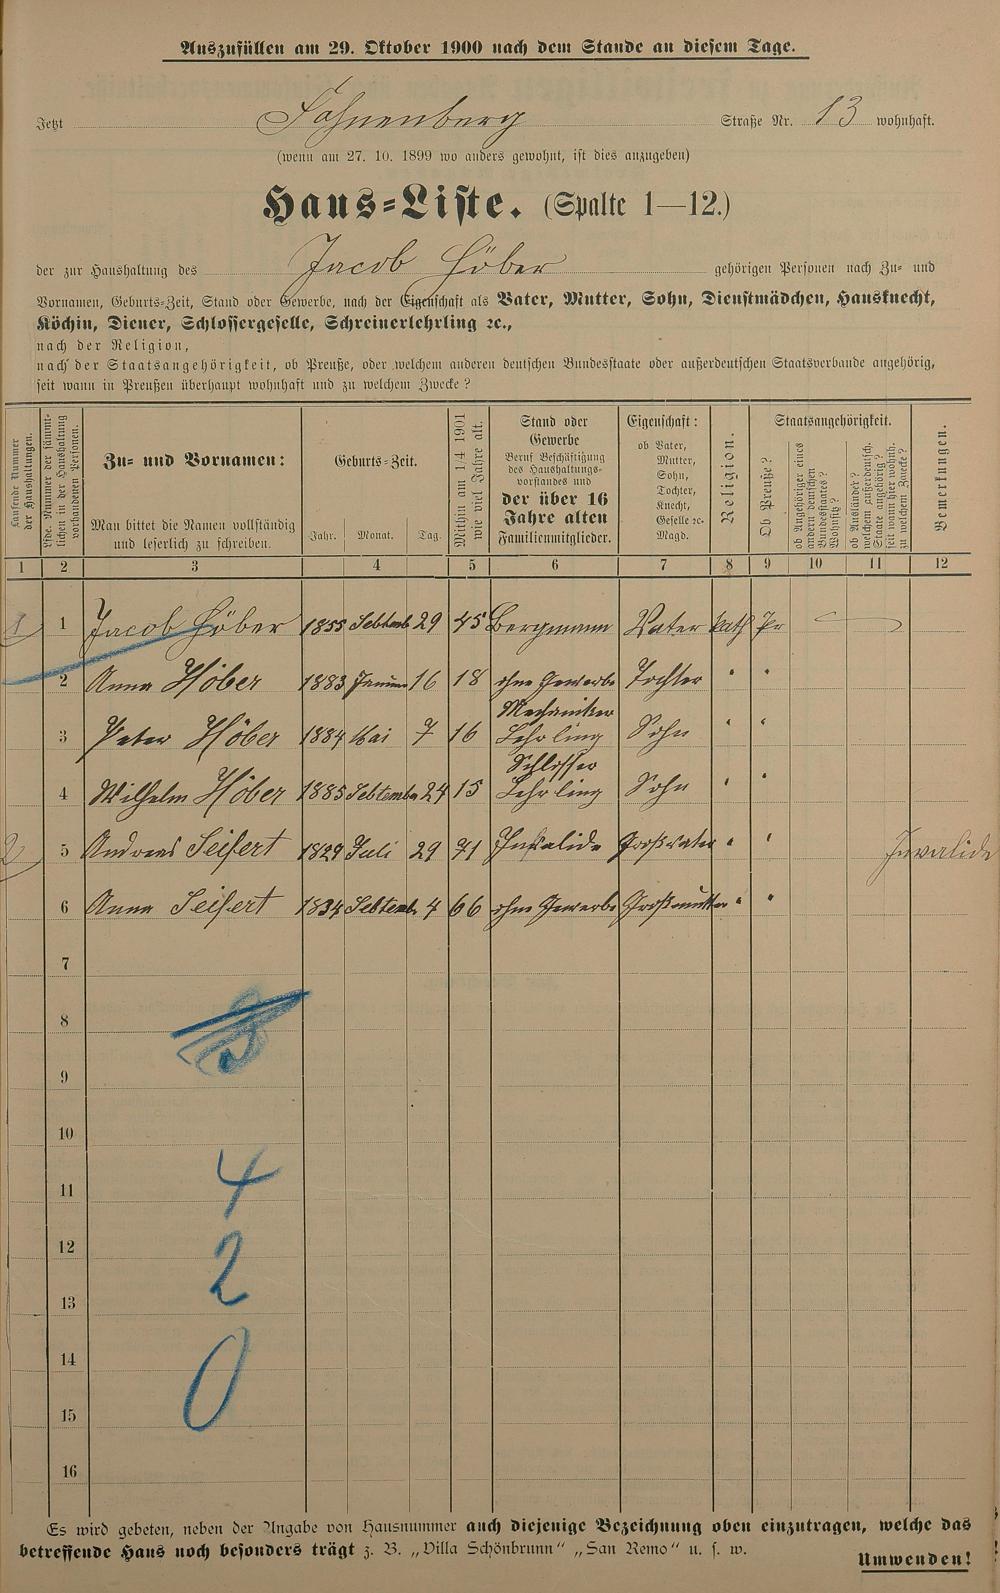 Auszufüllen am 29. Oktober 1900 nach dem Stande an diesem Tage.
Jetzt Fahnenberg Straße Nr. 13 wohnhaft.
(wenn am 27. 10. 1899 wo anders gewohnt, ist dies anzugeben)
Haus-Liste. (Spalte 1—12.)
der zur Haushaltung des Jacob Höber gehörigen Personen nach Zu- und
Vornamen, Geburts-Zeit, Stand oder Gewerbe, nach der Eigenschaft als Vater, Mutter, Sohn, Dienstmädchen, Hausknecht,
Köchin, Diener, Schlossergeselle, Schreinerlehrling ꝛc.,
nach der Religion,
nach der Staatsangehörigkeit, ob Preuße, oder welchem anderen deutschen Bundesstaate oder außerdeutschen Staatsverbande angehörig,
seit wann in Preußen überhaupt wohnhaft und zu welchem Zwecke?
Laufende Nummer
der Haushaltungen.
Lfde. Nummer der sämmt-
lichen in der Haushaltung
vorhandenen Personen.
Zu- und Vornamen:
Man bittet die Namen vollständig
und leserlich zu schreiben.
Geburts-Zeit.
Jahr. Monat. Tag.
Mithin am 1/4 1901
wie viel Jahre alt.
Stand oder
Gewerbe
Beruf Beschäftigung
des Haushaltungs-
vorstandes und
der über 16
Jahre alten
Familienmitglieder.
Eigenschaft:
ob Vater,
Mutter,
Sohn,
Tochter,
Knecht,
Geselle ꝛc.
Magd.
Religion.
Staatsangehörigkeit.
Ob Preuße?
ob Angehöriger eines
andern deutschen
Bundesstaates?
Wohnsitz?
ob Ausländer?
welchem außerdeutsch.
Staate angehörig?
seit wann hier wohnh.
zu welchem Zwecke?
Bemerkungen.
1 2 3 4 5 6 7 8 9 10 11 12
1 1 Jacob Höber 1855 Septemb 29 45 Bergmann Vater kath Pr
2 Anna Höber 1883 Januar 16 18 ohne Gewerbe Tochter " "
Mechaniker
3 Peter Höber 1884 Mai 7 16 Lehrling Sohn " "
Schlosser
4 Wilhelm Höber 1885 September 24 15 Lehrling Sohn " "
2 5 Andreas Seifert 1829 Juli 29 71 Invalide Großvater " " Invalide
6 Anna Seifert 1834 Septemb. 4 66 ohne Gewerbe Großmutter " "
7
8
9
10
4
11
12
2
13
14
0
15
16
Es wird gebeten, neben der Angabe von Hausnummer auch diejenige Bezeichnung oben einzutragen, welche das
betreffende Haus noch besonders trägt z. B. „Villa Schönbrunn" „San Remo" u. s. w.
Umwenden!